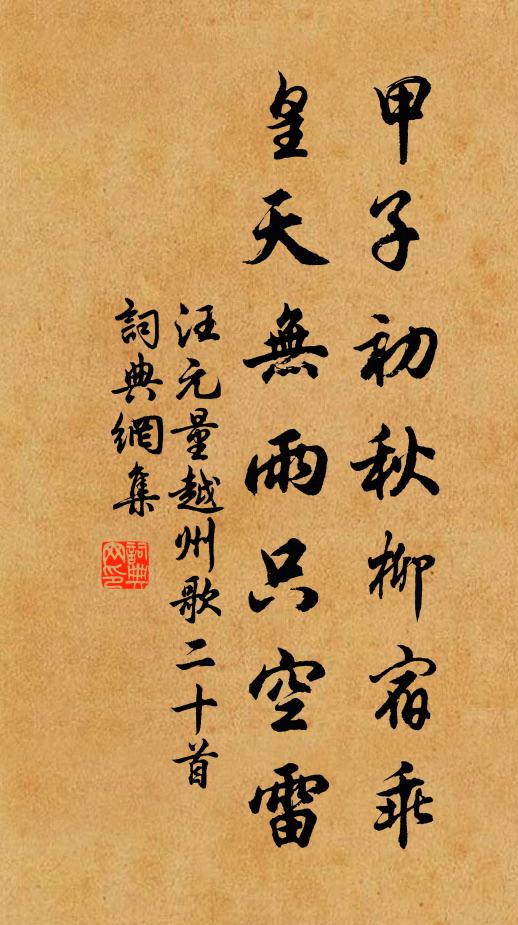 甲子初秋柳宿乖
皇天無雨只空雷
汪元量越州歌二十首
詞典網集
詞典網印